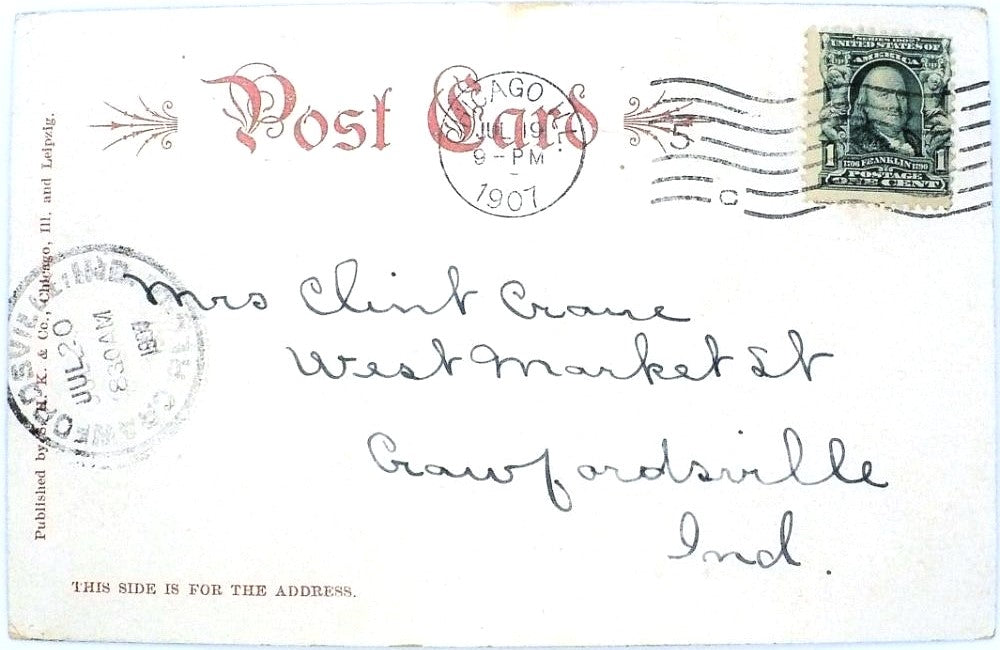 Post Card
CHICAGO, ILL.
JUL 19
9-PM
1907
5
C
SERIES 1902
UNITED STATES OF
AMERICA
1706 FRANKLIN 1790
1 1
POSTAGE
ONE CENT
Mrs Clint Crane
West Market St
Crawfordsville
Ind.
CRAWFORDSVILLE, IND.
JUL 20
830AM
Published by S. H. K. & Co., Chicago, Ill. and Leipzig.
THIS SIDE IS FOR THE ADDRESS.